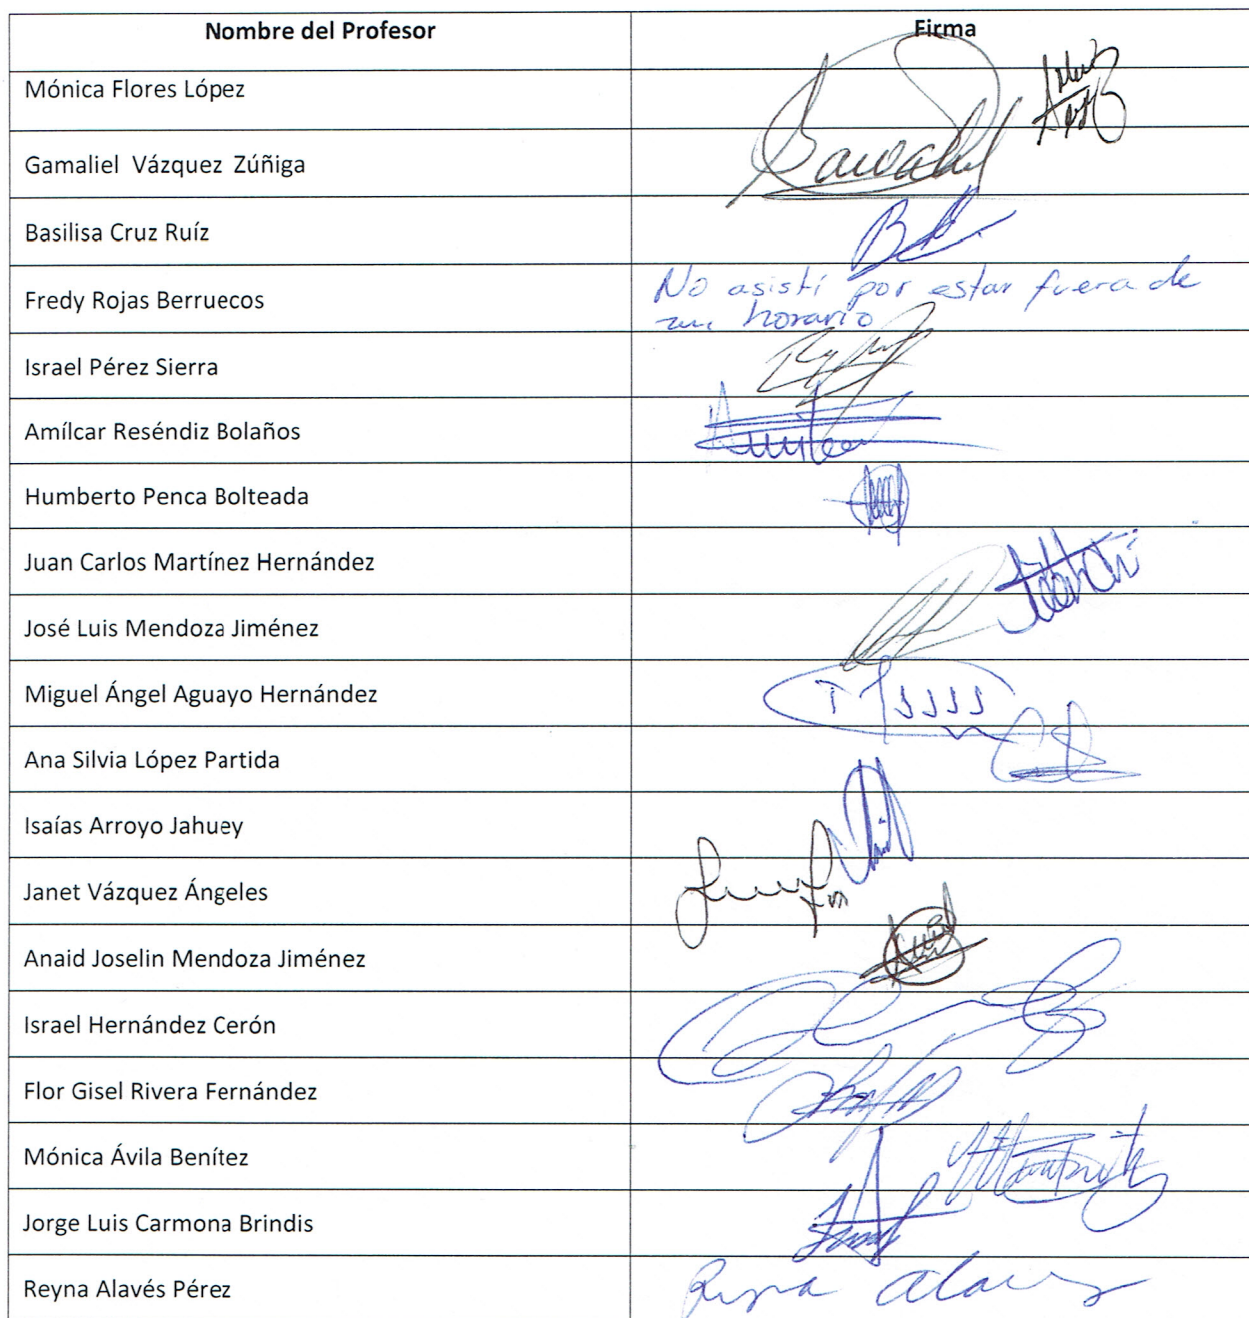 Nombre del Profesor Firma
Mónica Flores López
Gamaliel Vázquez Zúñiga
Basilisa Cruz Ruíz
Fredy Rojas Berruecos No asistí por estar fuera de
mi horario
Israel Pérez Sierra
Amílcar Reséndiz Bolaños
Humberto Penca Bolteada
Juan Carlos Martínez Hernández
José Luis Mendoza Jiménez
Miguel Ángel Aguayo Hernández
Ana Silvia López Partida
Isaías Arroyo Jahuey
Janet Vázquez Ángeles
Anaid Joselin Mendoza Jiménez
Israel Hernández Cerón
Flor Gisel Rivera Fernández
Mónica Ávila Benítez
Jorge Luis Carmona Brindis
Reyna Alavés Pérez